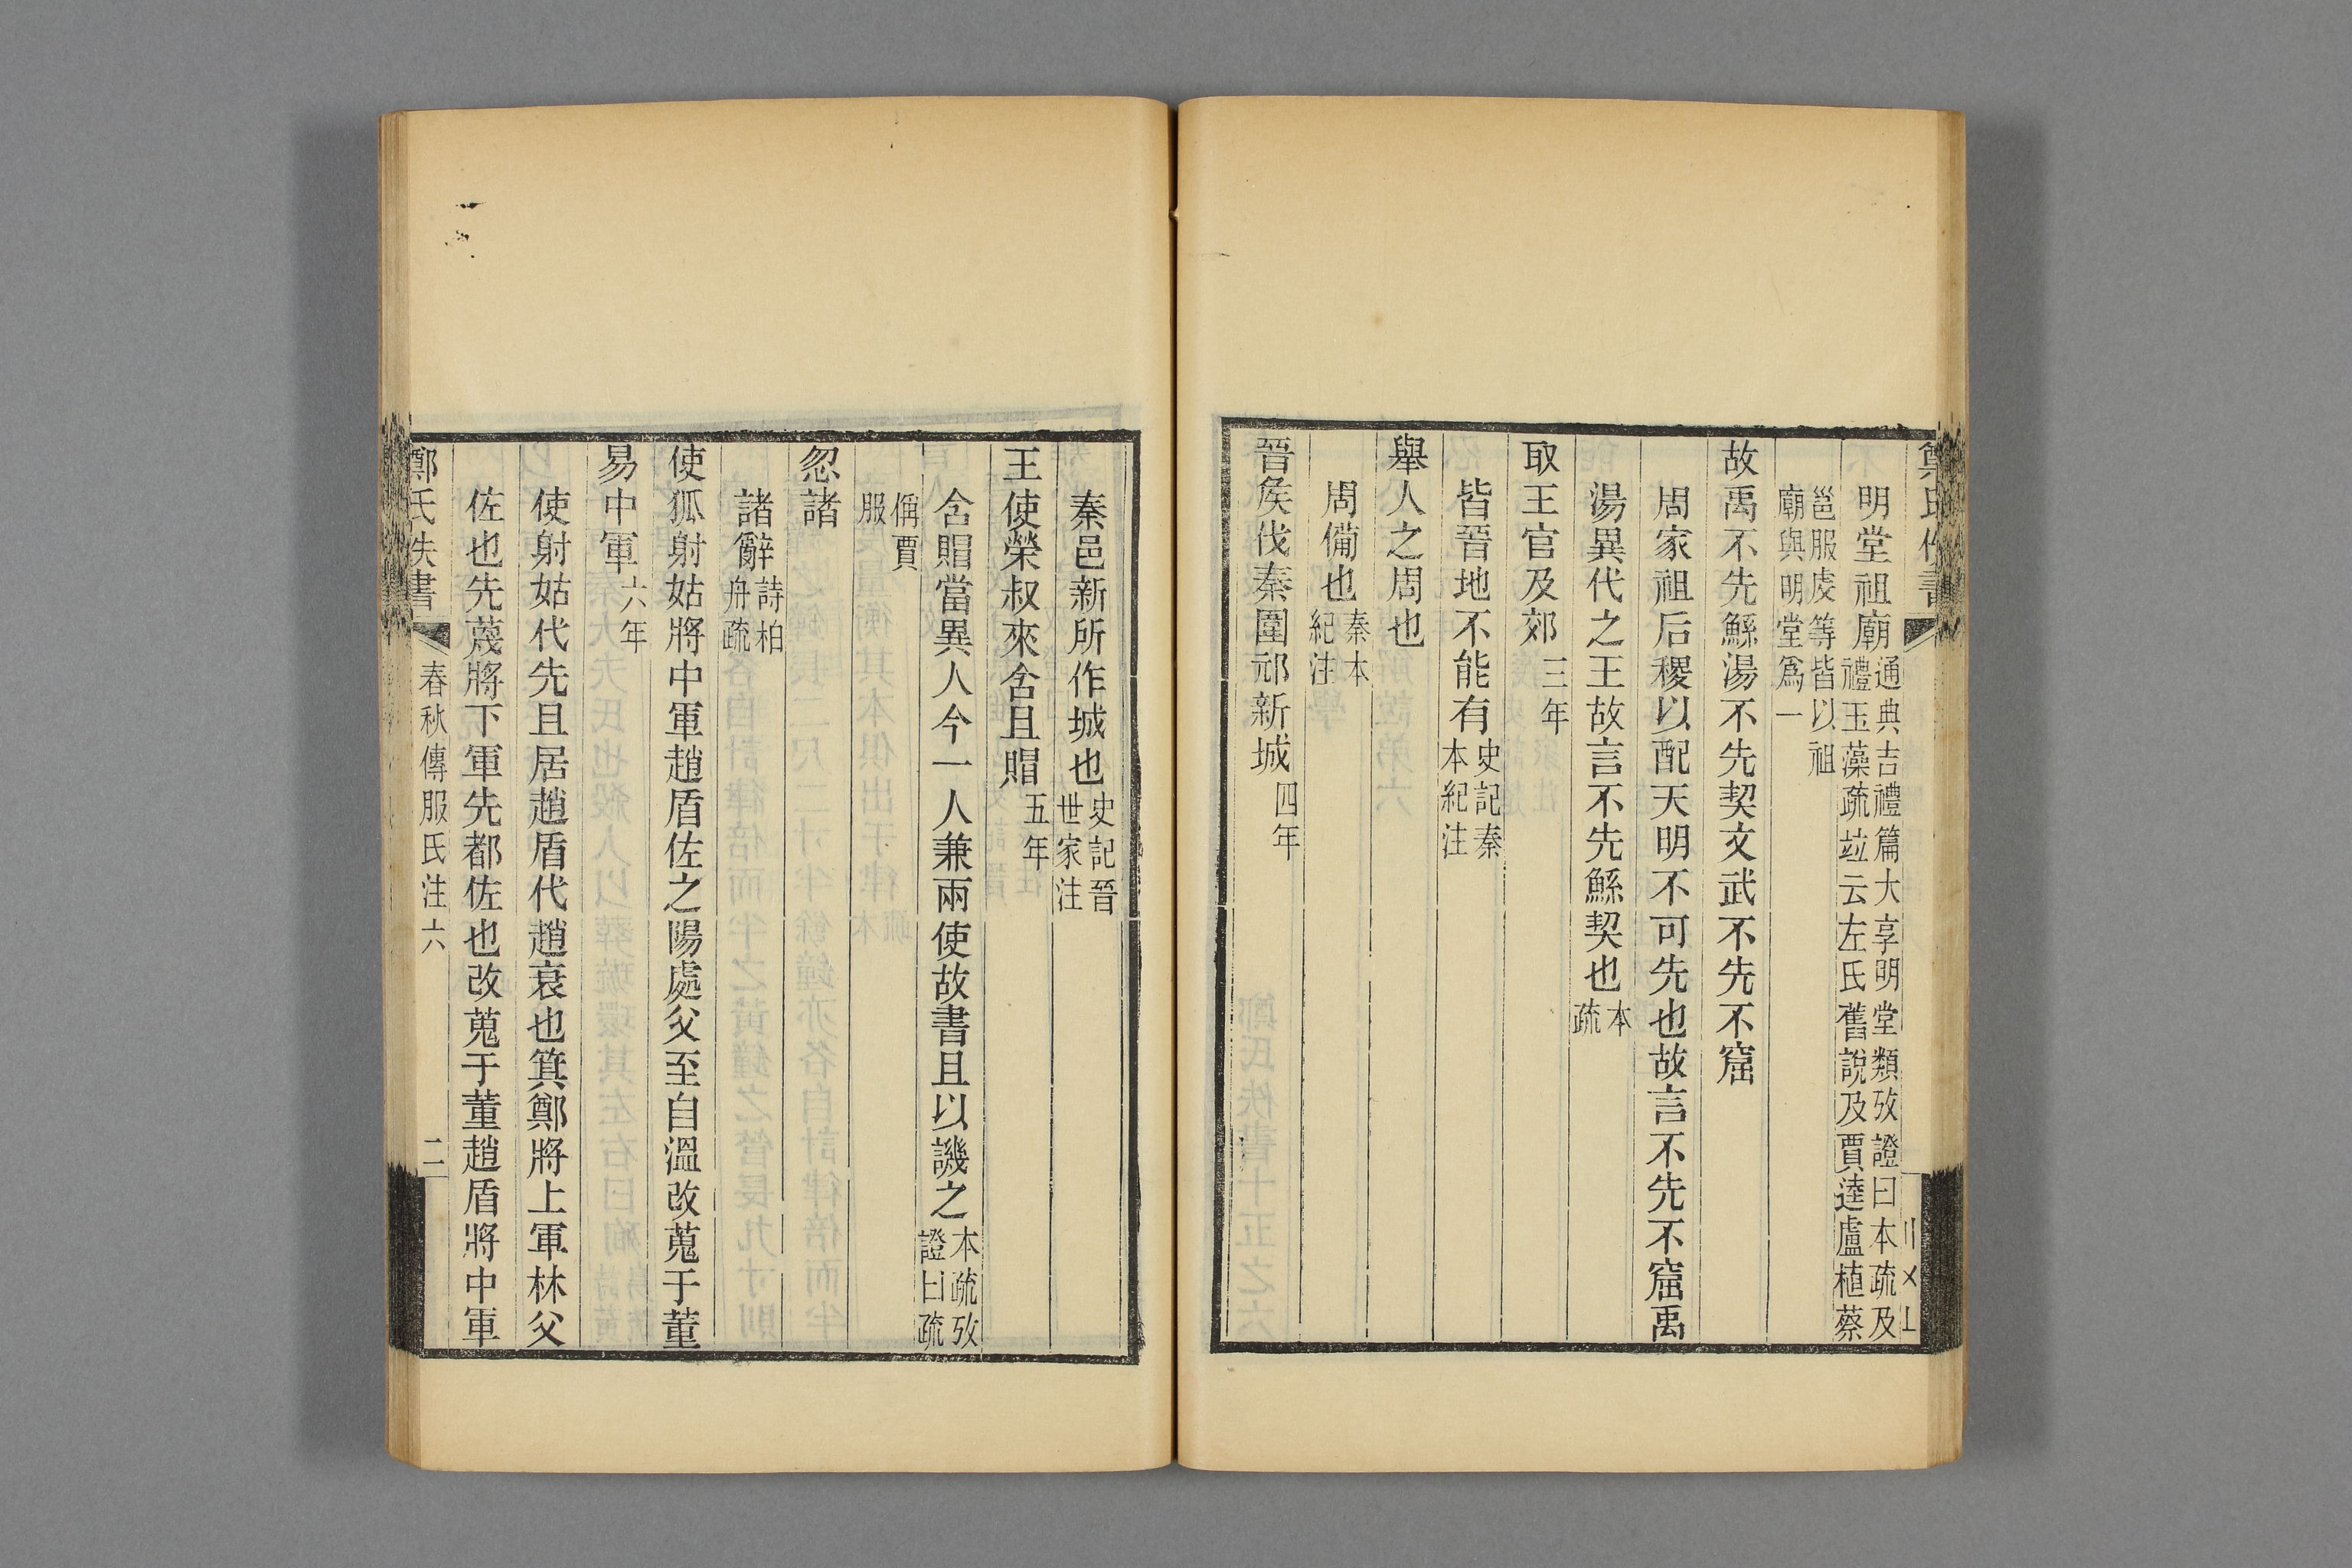 鄭氏佚書
明堂祖廟通典吉禮篇大享明堂類攷證曰本疏及禮玉藻疏竝云左氏舊說及賈逵盧植蔡
邕服虔等皆以祖廟與明堂爲一
故禹不先鯀湯不先契文武不先不窟
周家祖后稷以配天明不可先也故言不先不窟禹
湯異代之王故言不先鯀契也本疏
取王官及郊三年
皆晉地不能有史記秦本紀注
舉人之周也
周備也秦本紀注
晉矦伐秦圍祁新城四年
秦邑新所作城也史記晉世家注
王使榮叔來含且賵五年
含賵當異人今一人兼兩使故書且以譏之本疏攷證曰疏
偁賈服
忽諸
諸辭詩柏舟疏
使狐射姑將中軍趙盾佐之陽處父至自溫改蒐于董
易中軍六年
使射姑代先且居趙盾代趙衰也箕鄭將上軍林父
佐也先蔑將下軍先都佐也改蒐于董趙盾將中軍
鄭氏佚書 春秋傳服氏注六 二